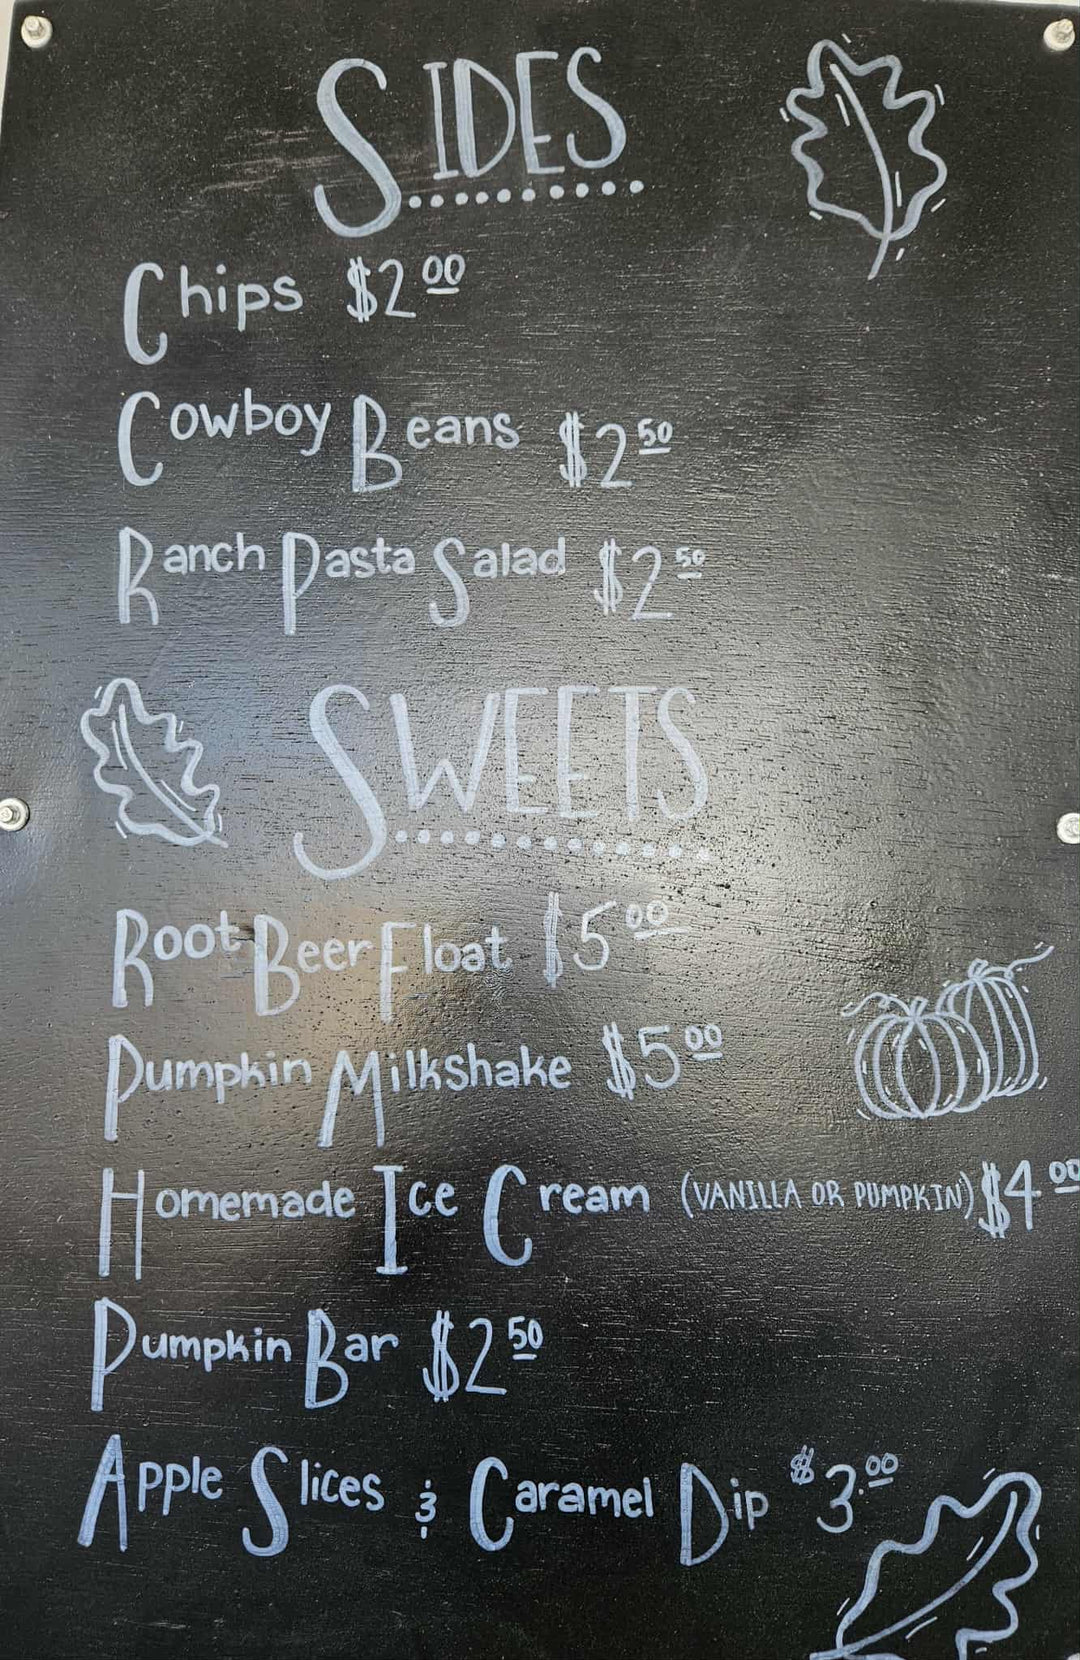 SIDES
Chips $2.00
Cowboy Beans $2.50
Ranch Pasta Salad $2.50
SWEETS
Root Beer Float $5.00
Pumpkin Milkshake $5.00
Homemade Ice Cream (VANILLA OR PUMPKIN) $4.00
Pumpkin Bar $2.50
Apple Slices & Caramel Dip $3.00